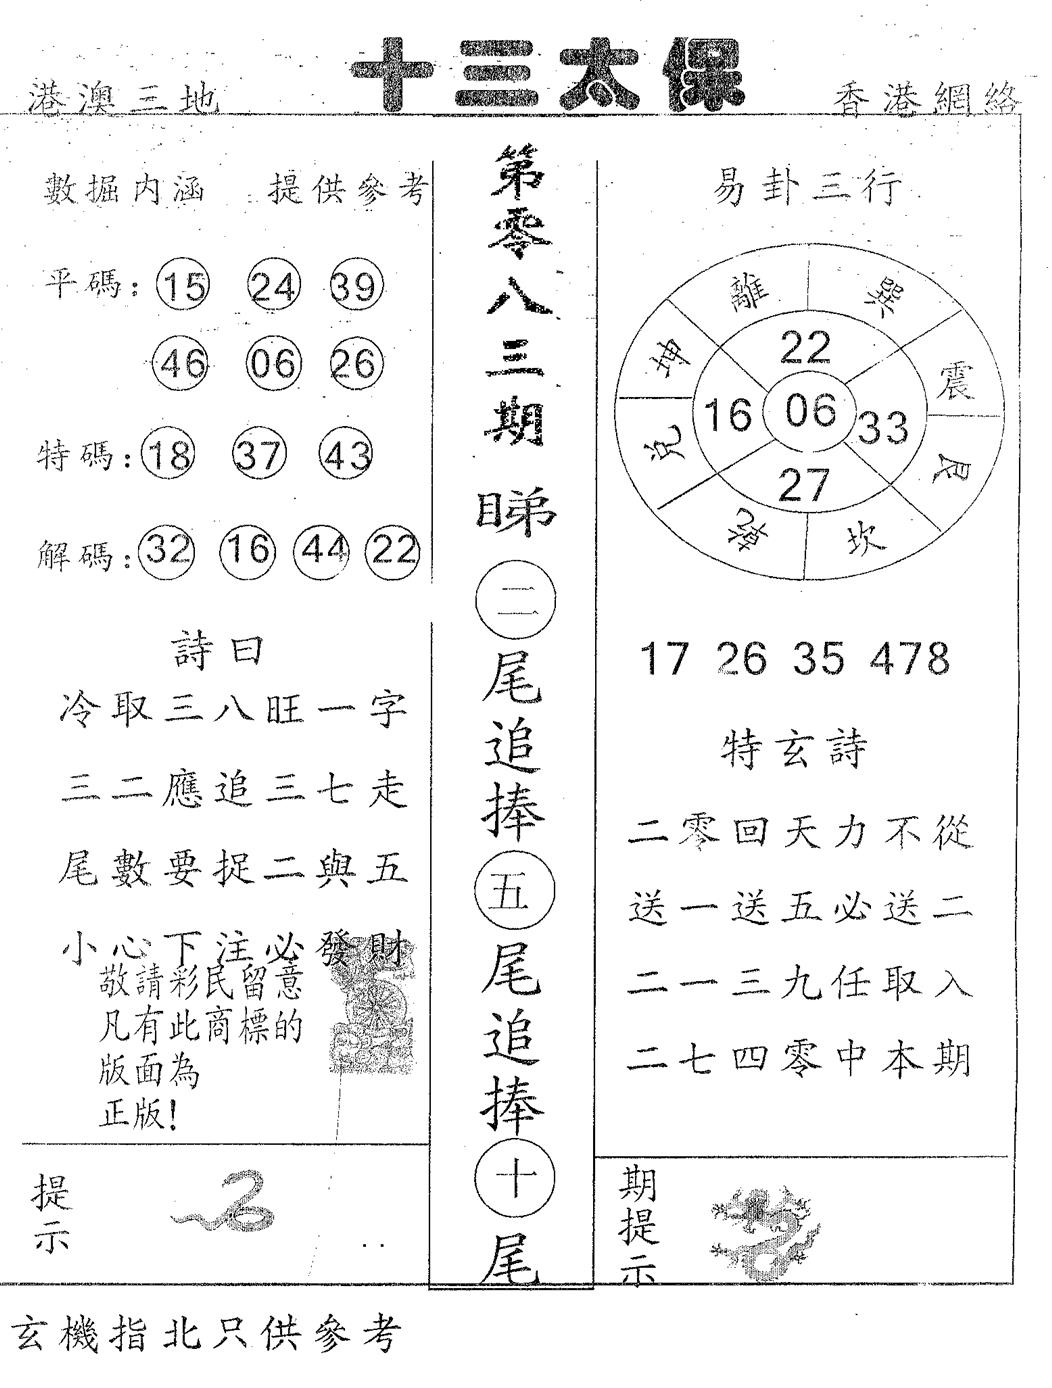 十三太保
港澳三地
香港網絡
數掘内涵 提供參考
平碼: 15 24 39
46 06 26
特碼: 18 37 43
解碼: 32 16 44 22
詩曰
冷取三八旺一字
三二應追三七走
尾數要捉二與五
小心下注必發財
敬請彩民留意
凡有此商標的
版面為
正版!
提示
第零八三期
睇二尾追捧五尾追捧十尾
易卦三行
離 巽
坤 震
兌 艮
乾 坎
22
16 06 33
27
17 26 35 478
特玄詩
二零回天力不從
送一送五必送二
二一三九任取入
二七四零中本期
期提示
玄機指北只供參考